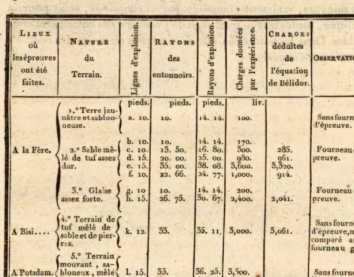 LIEUX
où
les épreuves
ont été
faites.
NATURE
du
Terrain.
Lignes d'explosion.
RAYONS
des
entonnoirs.
Rayons d'explosion.
Charges données
par l'expérience.
CHARGES
déduites
de
l'équation
de Bélidor.
pieds. pieds. pieds. liv.
1.° Terre jau-
nâtre et sablon-
neuse.
a. 10. 10. 14. 14. 100.
A la Fère.
b. 10. 10. 14. 14. 170.
2.° Sable mê-
lé de tuf assez
dur.
c. 10. 13. 50. 16. 80. 300. 285.
d. 15. 20. 00. 25. 00 980. 961.
e. 15. 35. 00. 38. 08.
f. 10. 22. 66. 24. 77. 1,000. 914.
3.° Glaise
assez forte.
g. 10 10. 14. 14. 200.
h. 15. 26. 75. 30. 67. 2,400. 2,041.
A Bisi....
4.° Terrain de
tuf mêlé de
sable et de pier-
res.
k. 12. 33. 35. 11. 3,000. 3,061.
5.° Terrain
mouvant, sa-
bloneux, mêlé
A Potsdam.
l. 15. 33. 36. 25.